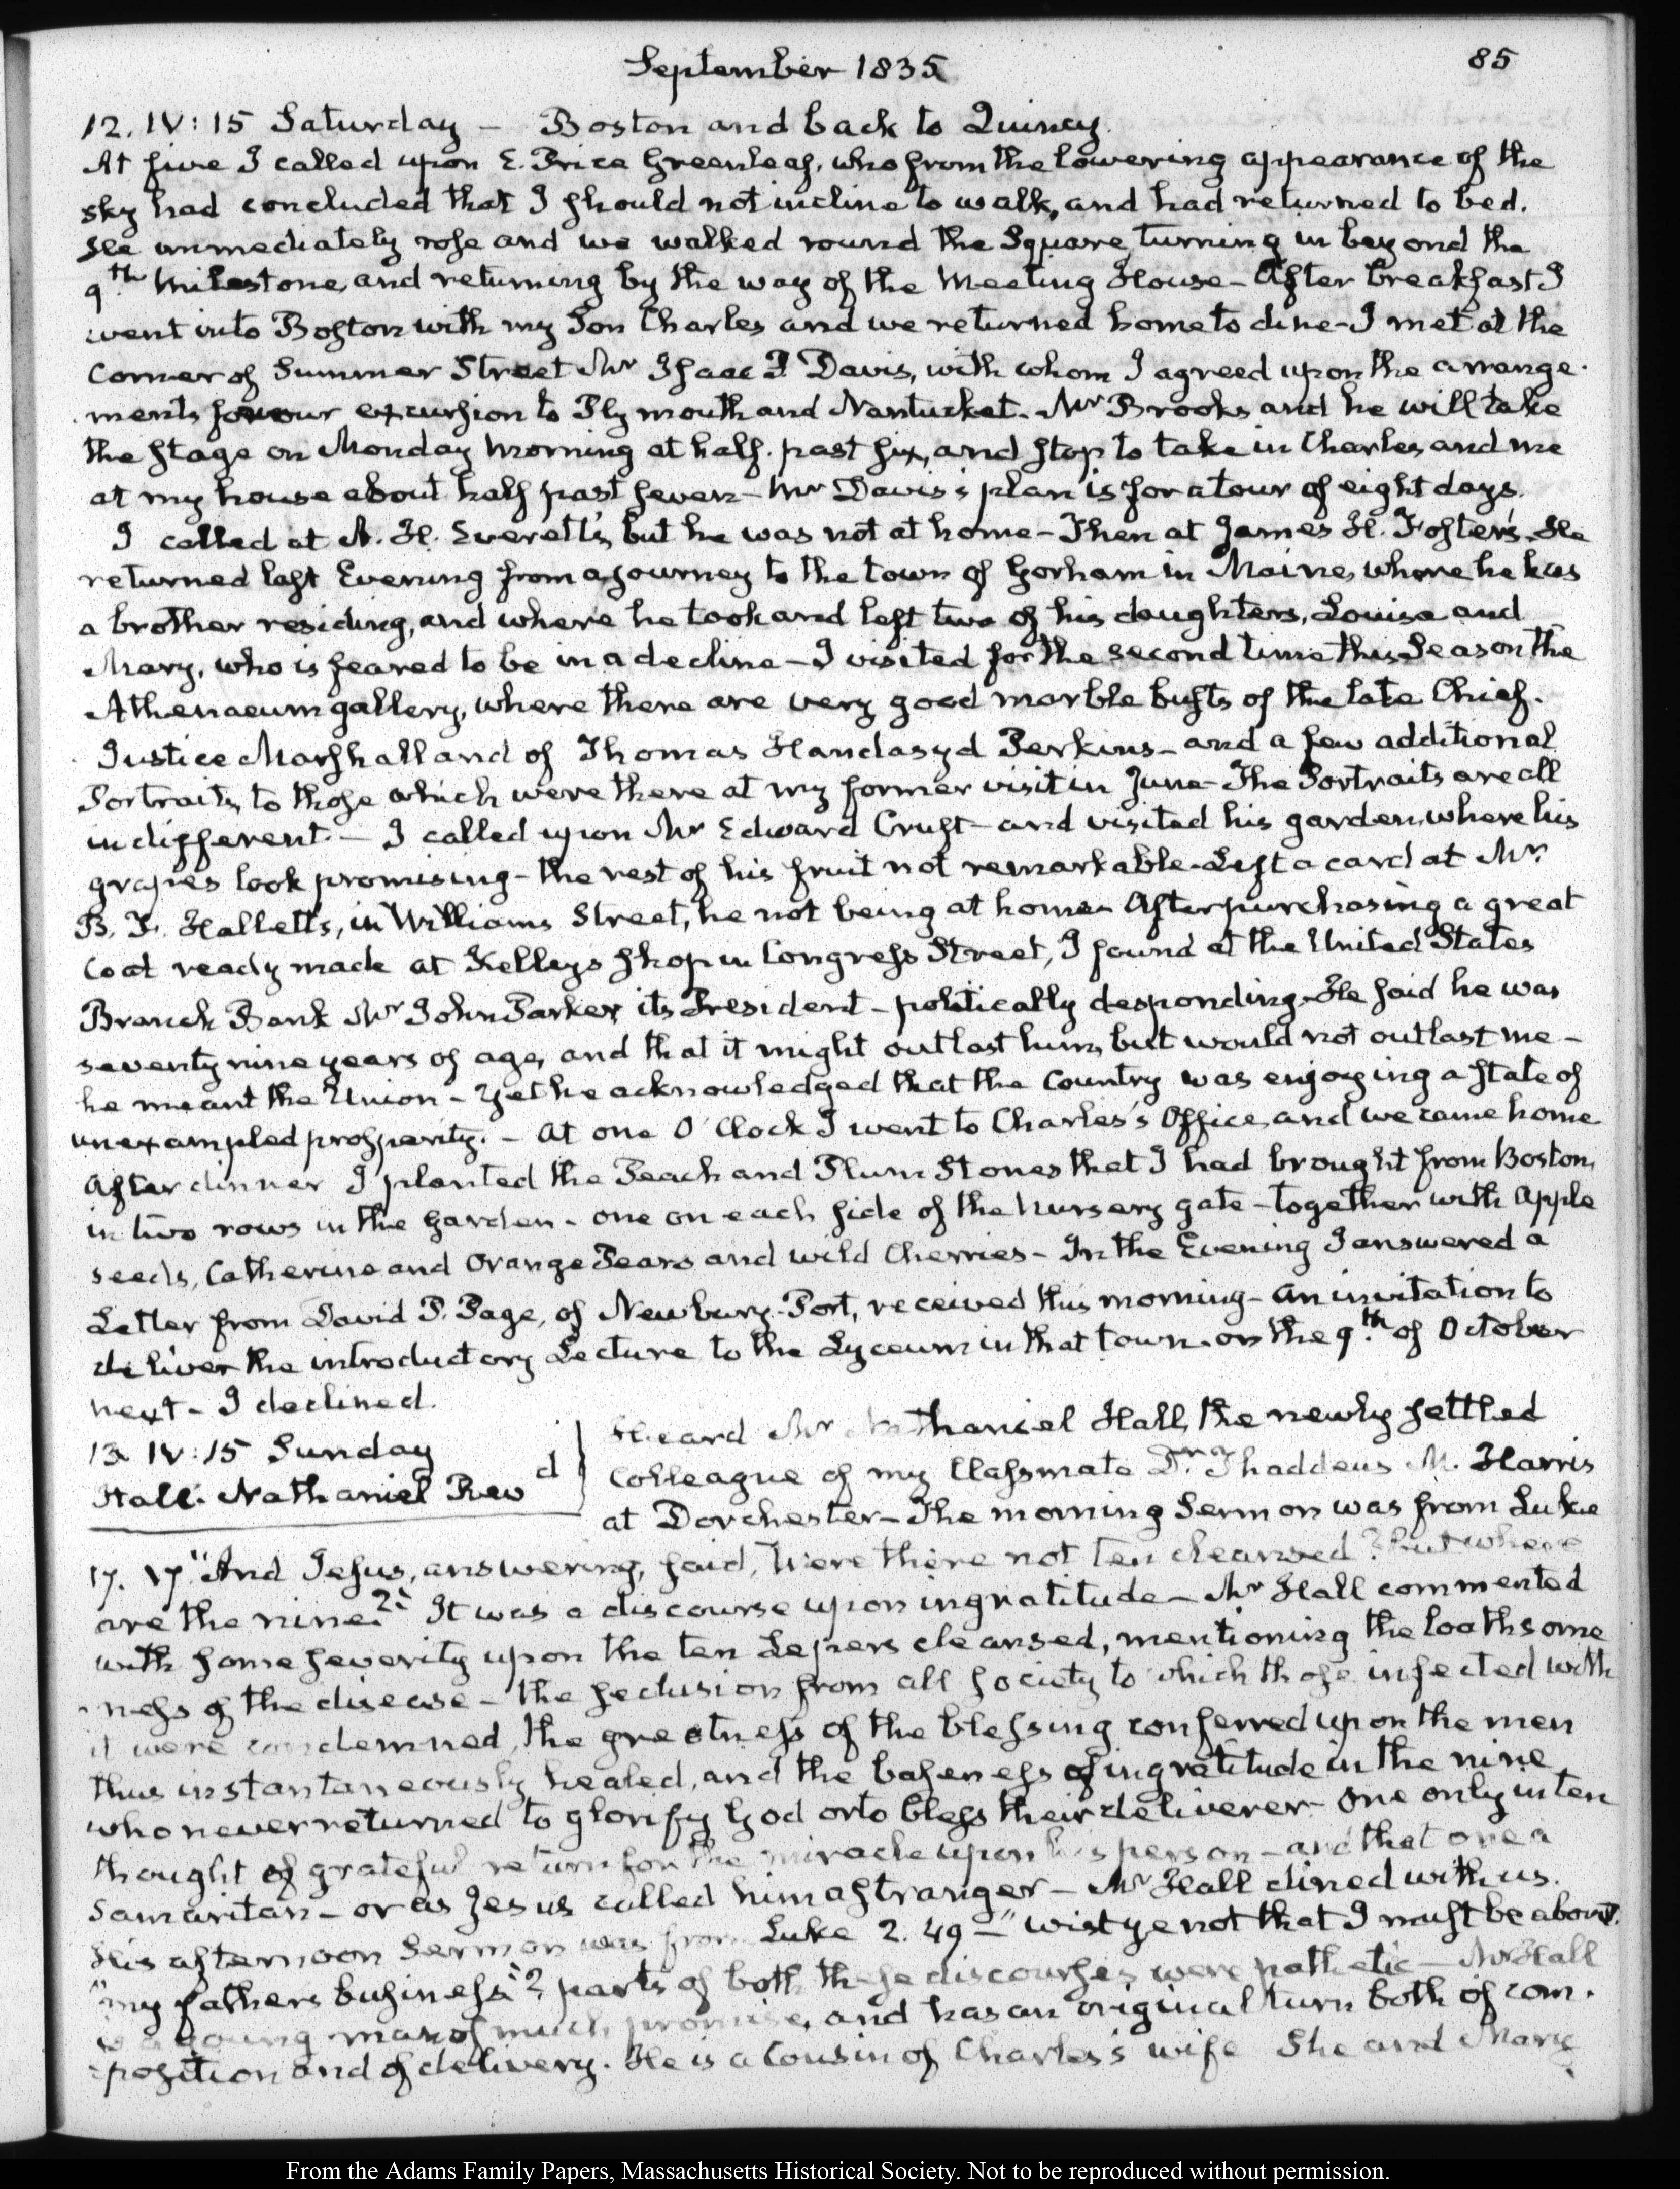 September 1835
85
12. IV: 15 Saturday – Boston and back to Quincy.
At five I called upon E. Price Greenleaf, who from the lowering appearance of the
sky had concluded that I should not incline to walk, and had returned to bed.
He immediately rose and we walked round the Square, turning in beyond the
9th Milestone, and returning by the way of the Meeting House – After breakfast I
went into Boston with my Son Charles and we returned home to dine – I met at the
corner of Summer Street Mr Isaac P Davis, with whom I agreed upon the arrange-
ments for our excursion to Plymouth and Nantucket. Mr Brooks and he will take
the stage on Monday morning at half past six, and stop to take in Charles, and me
at my house about half past seven – Mr Davis's plan is for a tour of eight days.
I called at A. H. Everett's, but he was not at home – Then at James H. Foster's. He
returned last Evening from a journey to the town of Gorham in Maine, where he has
a brother residing, and where he took and left two of his daughters, Louisa and
Mary, who is feared to be in a decline – I visited for the second time this Season the
Athenaeum gallery, where there are very good marble busts of the late Chief-
Justice Marshall and of Thomas Handasyd Perkins – and a few additional
Portraits, to those which were there at my former visit in June – The Portraits are all
indifferent. – I called upon Mr Edward Cruft – and visited his garden, where his
grapes look promising – the rest of his fruit not remarkable – Left a card at Mr
B. F. Hallett's, in Williams Street, he not being at home – After purchasing a great
coat ready made at Kelleys shop in Congress Street, I found at the United States
Branch Bank Mr John Parker, its President – politically desponding – He said he was
seventy nine years of age, and that it might outlast him, but would not outlast me –
he meant the Union – Yet he acknowledged that the Country was enjoying a state of
unexampled prosperity. – At one O'Clock I went to Charles's Office, and we came home
After dinner I planted the Peach and Plum Stones that I had brought from Boston,
in two rows in the garden – one on each side of the nursery gate – together with Apple
seeds, Catherine and Orange Pears and wild Cherries – In the Evening I answered a
Letter from David P. Page, of Newbury-Port, received this morning – An invitation to
deliver the introductory Lecture to the Lyceum in that town on the 9th of October
next – I declined.
13. IV: 15 Sunday
Hall. Nathaniel Revd
Heard Mr Nathaniel Hall, the newly settled
Colleague of my Classmate Dr Thaddeus M. Harris
at Dorchester – The morning Sermon was from Luke
17. 17 "And Jesus, answering, said, Were there not ten cleansed? but where
are the nine?" It was a discourse upon ingratitude – Mr Hall commented
with some severity upon the ten Lepers cleansed, mentioning the loathsome
ness of the disease – the seclusion from all society to which those infected with
it were condemned, the greatness of the blessing conferred upon the men
thus instantaneously healed, and the baseness of ingratitude in the nine
who never returned to glorify God or to bless their deliverer – one only in ten
thought of grateful return for the miracle upon his person – and that one a
Samaritan – or as Jesus called him a stranger – Mr Hall dined with us.
His afternoon Sermon was from Luke 2. 49 – "wist ye not that I must be about
"my fathers business"? parts of both these discourses were pathetic – Mr Hall
is a young man of much promise, and has an original turn both of com-
position and of delivery. He is a Cousin of Charles's wife She and Mary
From the Adams Family Papers, Massachusetts Historical Society. Not to be reproduced without permission.